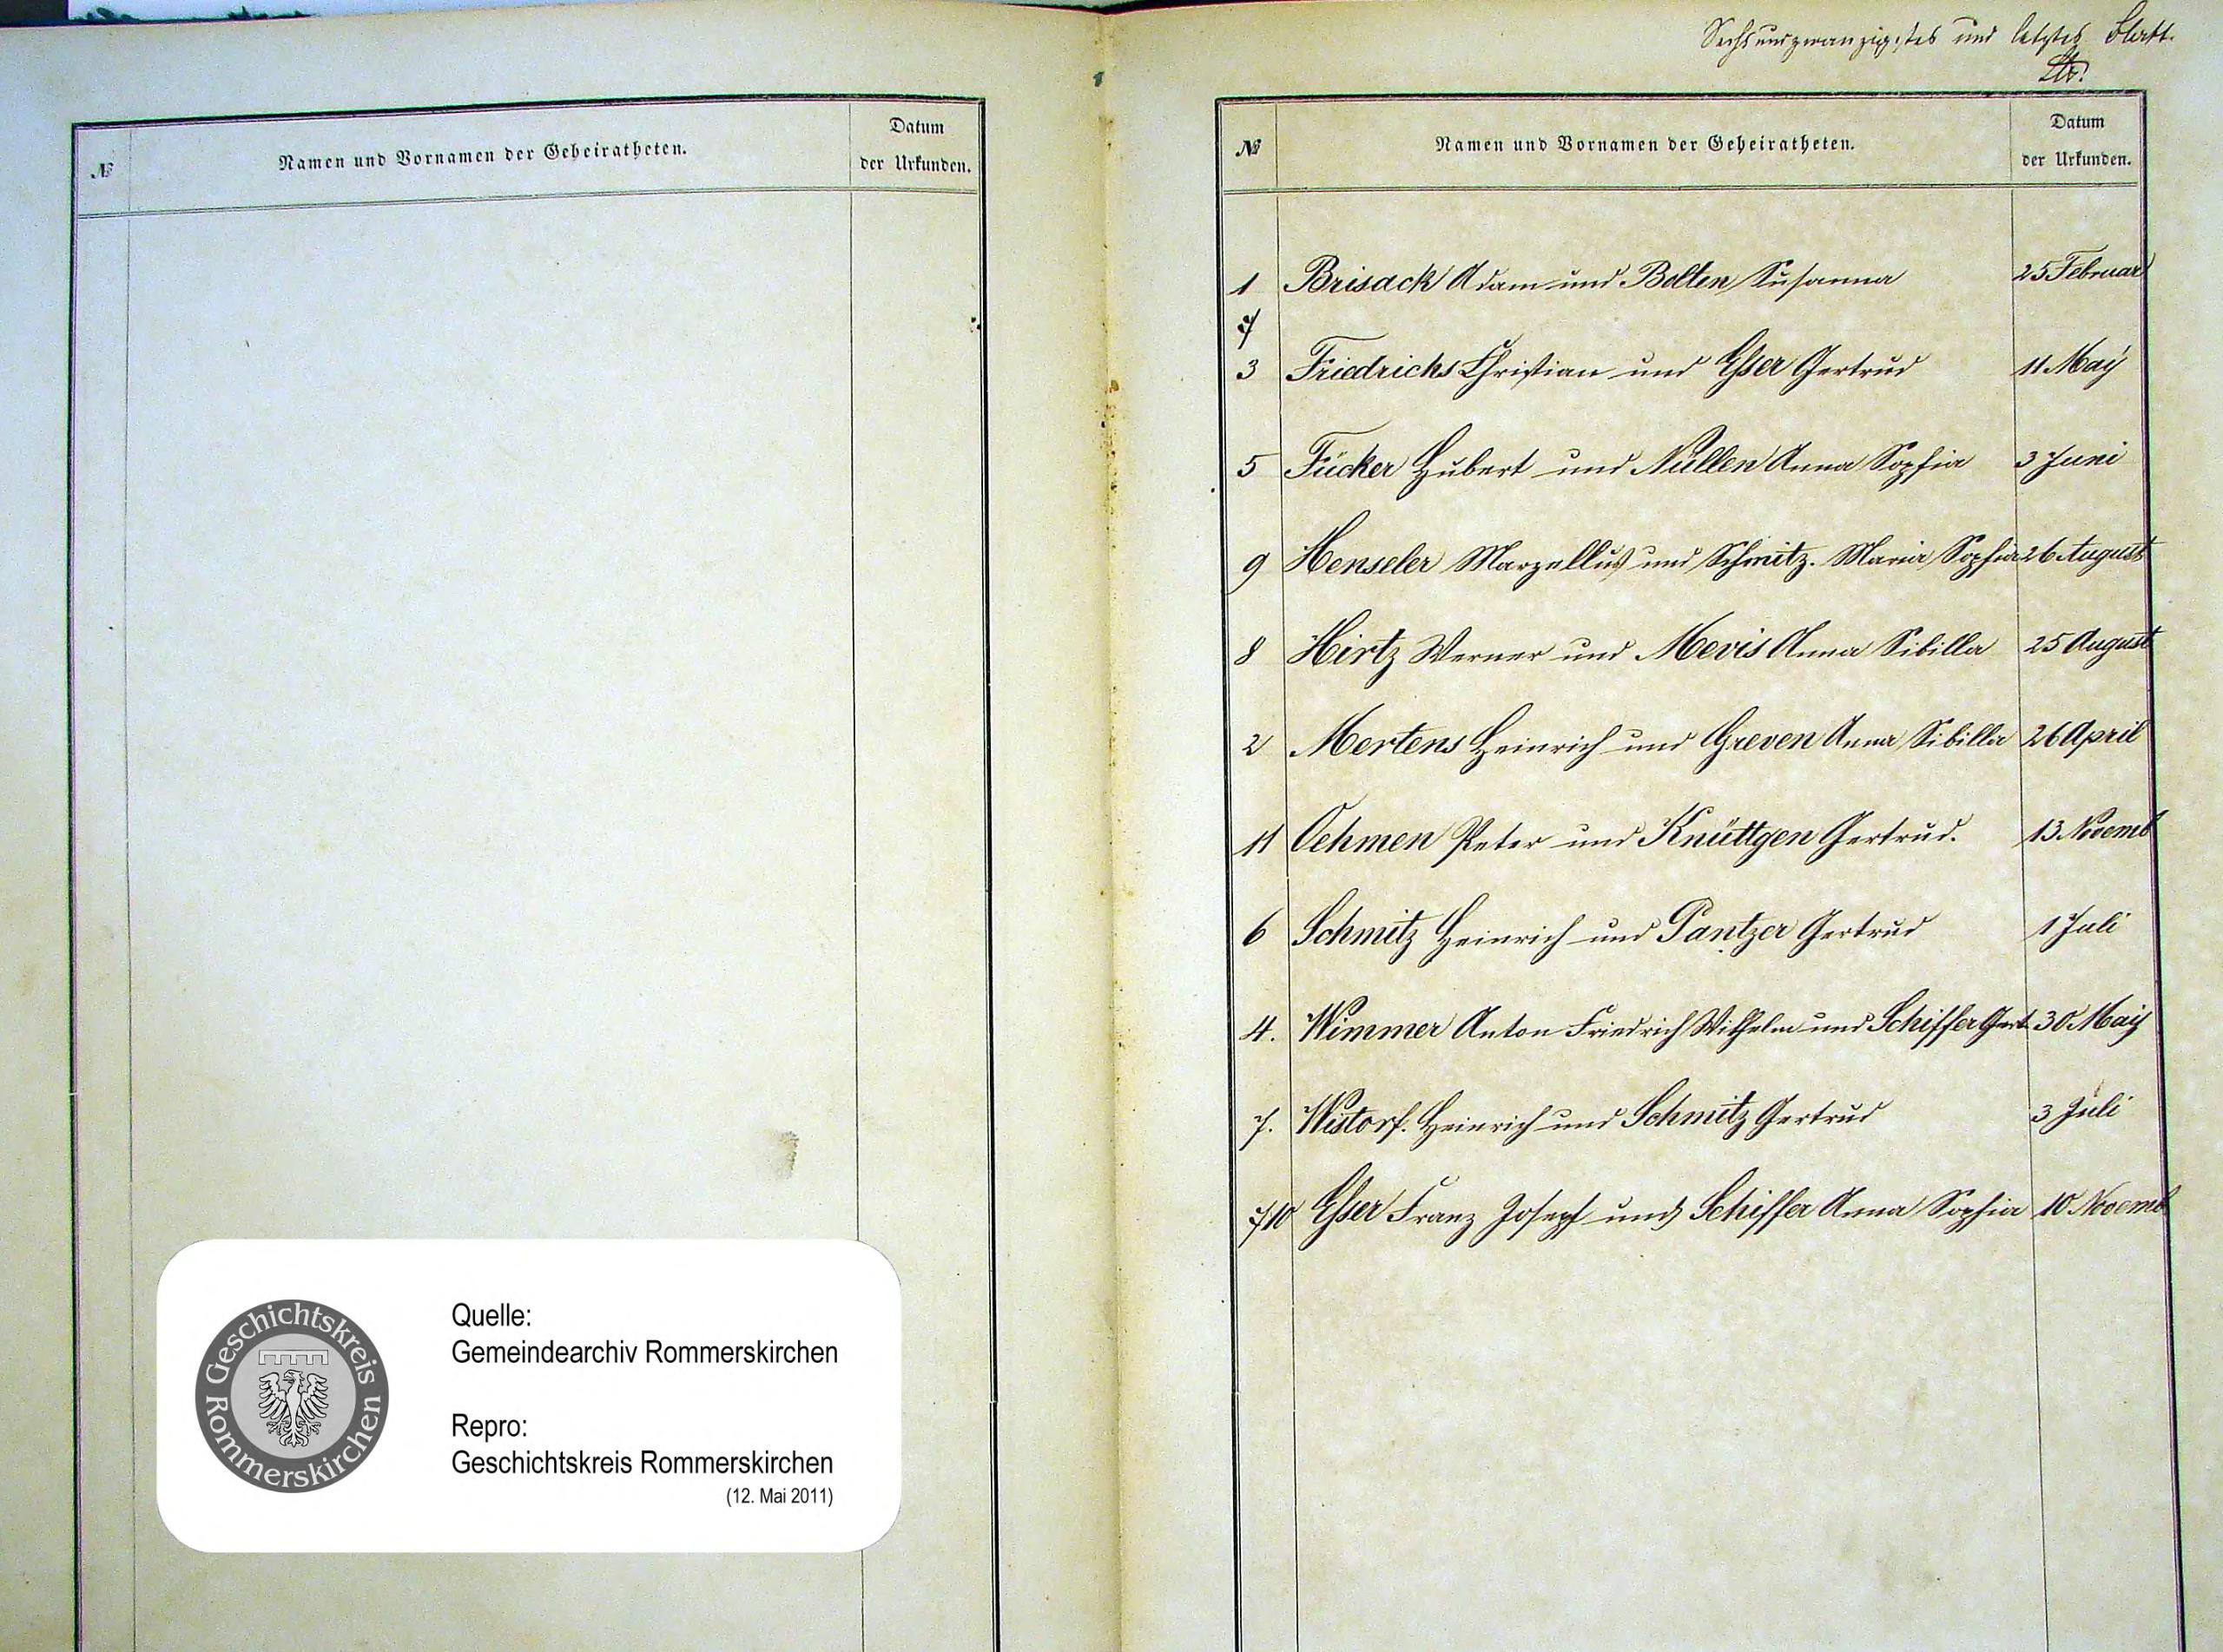 №
Namen und Vornamen der Geheiratheten.
Datum
der Urkunden.
Geschichtskreis Rommerskirchen
Quelle:
Gemeindearchiv Rommerskirchen
Repro:
Geschichtskreis Rommerskirchen
(12. Mai 2011)
Sechsundzwanzigstes und letztes Blatt.
№
Namen und Vornamen der Geheiratheten.
Datum
der Urkunden.
1 Brisack Adam und Bolten Susanna 25 Februar
3 Friedrichs Christian und Esser Gertrud 11 May
5 Fücker Hubert und Nüllen Anna Sophia 3 Juni
9 Henseler Marzellus und Schmitz. Maria Sophia 26 August
8 Hirtz Werner und Mevis Anna Sibilla 25 August
2 Mertens Heinrich und Greven Anna Sibilla 26 April
11 Oehmen Peter und Knüttgen Gertrud. 13 Novemb
6 Schmitz Heinrich und Pantzer Gertrud 1 Juli
4. Wimmer Anton Friedrich Wilhelm und Schiffer Gert 30 May
7. Wistorf. Heinrich und Schmitz Gertrud 3 Juli
10 Esser Franz Joseph und Schiffer Anna Sophia 10 Novemb